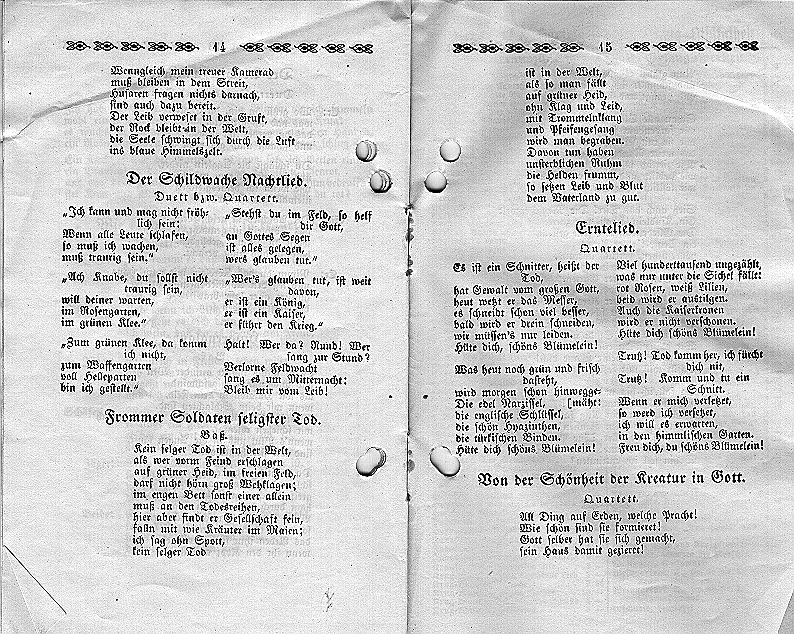 14
Wenngleich mein treuer Kamerad
muß bleiben in dem Streit,
Husaren fragen nichts darnach,
sind auch dazu bereit.
Der Leib verweset in der Gruft,
der Rock bleibt an der Welt,
die Seele schwingt sich durch die Luft
ins blaue Himmelszelt.
Der Schildwache Nachtlied.
Duett bzw. Quartett.
„Ich kann und mag nicht fröh-
lich sein:
Wenn alle Leute schlafen,
so muß ich wachen,
muß traurig sein.“
„Ach Knabe, du sollst nicht
traurig sein,
will deiner warten,
im Rosengarten,
im grünen Klee.“
„Zum grünen Klee, da komm
ich nicht,
zum Waffengarten
voll Helleparten
bin ich gestellt.“
„Stehst du im Feld, so helf
dir Gott,
an Gottes Segen
ist alles gelegen,
wers glauben tut.“
„Wer's glauben tut, ist weit
davon,
er ist ein König,
er ist ein Kaiser,
er führt den Krieg.“
Halt! Wer da? Rund! Wer
sang zur Stund?
Verlorne Feldwacht
sang es um Mitternacht:
Bleib mir vom Leib!
Frommer Soldaten seligster Tod.
Baß.
Kein selger Tod ist in der Welt,
als wer vorm Feind erschlagen
auf grüner Heid, im freien Feld,
darf nicht hörn groß Wehklagen;
im engen Bett sonst einer allein
muß an den Todesreihen,
hier aber findt er Gesellschaft fein,
falln mit wie Kräuter im Maien;
ich sag ohn Spott,
kein selger Tod
15
ist in der Welt,
als so man fällt
auf grüner Heid,
ohn Klag und Leid,
mit Trommelnklang
und Pfeifengesang
wird man begraben.
Davon tun haben
unsterblichen Ruhm
die Helden frumm,
so setzen Leib und Blut
dem Vaterland zu gut.
Erntelied.
Quartett.
Es ist ein Schnitter, heißt der
Tod,
hat Gewalt vom großen Gott,
heut wetzt er das Messer,
es schneidt schon viel besser,
bald wird er drein schneiden,
wir müssen's nur leiden.
Hüte dich, schöns Blümelein!
Was heut noch grün und frisch
dasteht,
wird morgen schon hinwegge-
Die edel Narzissel, [mäht:
die englische Schlüssel,
die schön Hyazinthen,
die türkischen Binden.
Hüte dich schöns Blümelein!
Viel hunderttausend ungezählt,
was nur unter die Sichel fällt:
rot Rosen, weiß Lilien,
beid wird er austilgen.
Auch die Kaiserkronen
wird er nicht verschonen.
Hüte dich, schöns Blümelein!
Trutz! Tod komm her, ich fürcht
dich nit,
Trutz! Komm und tu ein
Schnitt.
Wenn er mich verletzet,
so werd ich versetzet,
ich will es erwarten,
in den himmlischen Garten.
Freu dich, du schöns Blümelein!
Von der Schönheit der Kreatur in Gott.
Quartett.
All Ding auf Erden, welche Pracht!
Wie schön sind sie formieret!
Gott selber hat sie sich gemacht,
sein Haus damit gezieret!